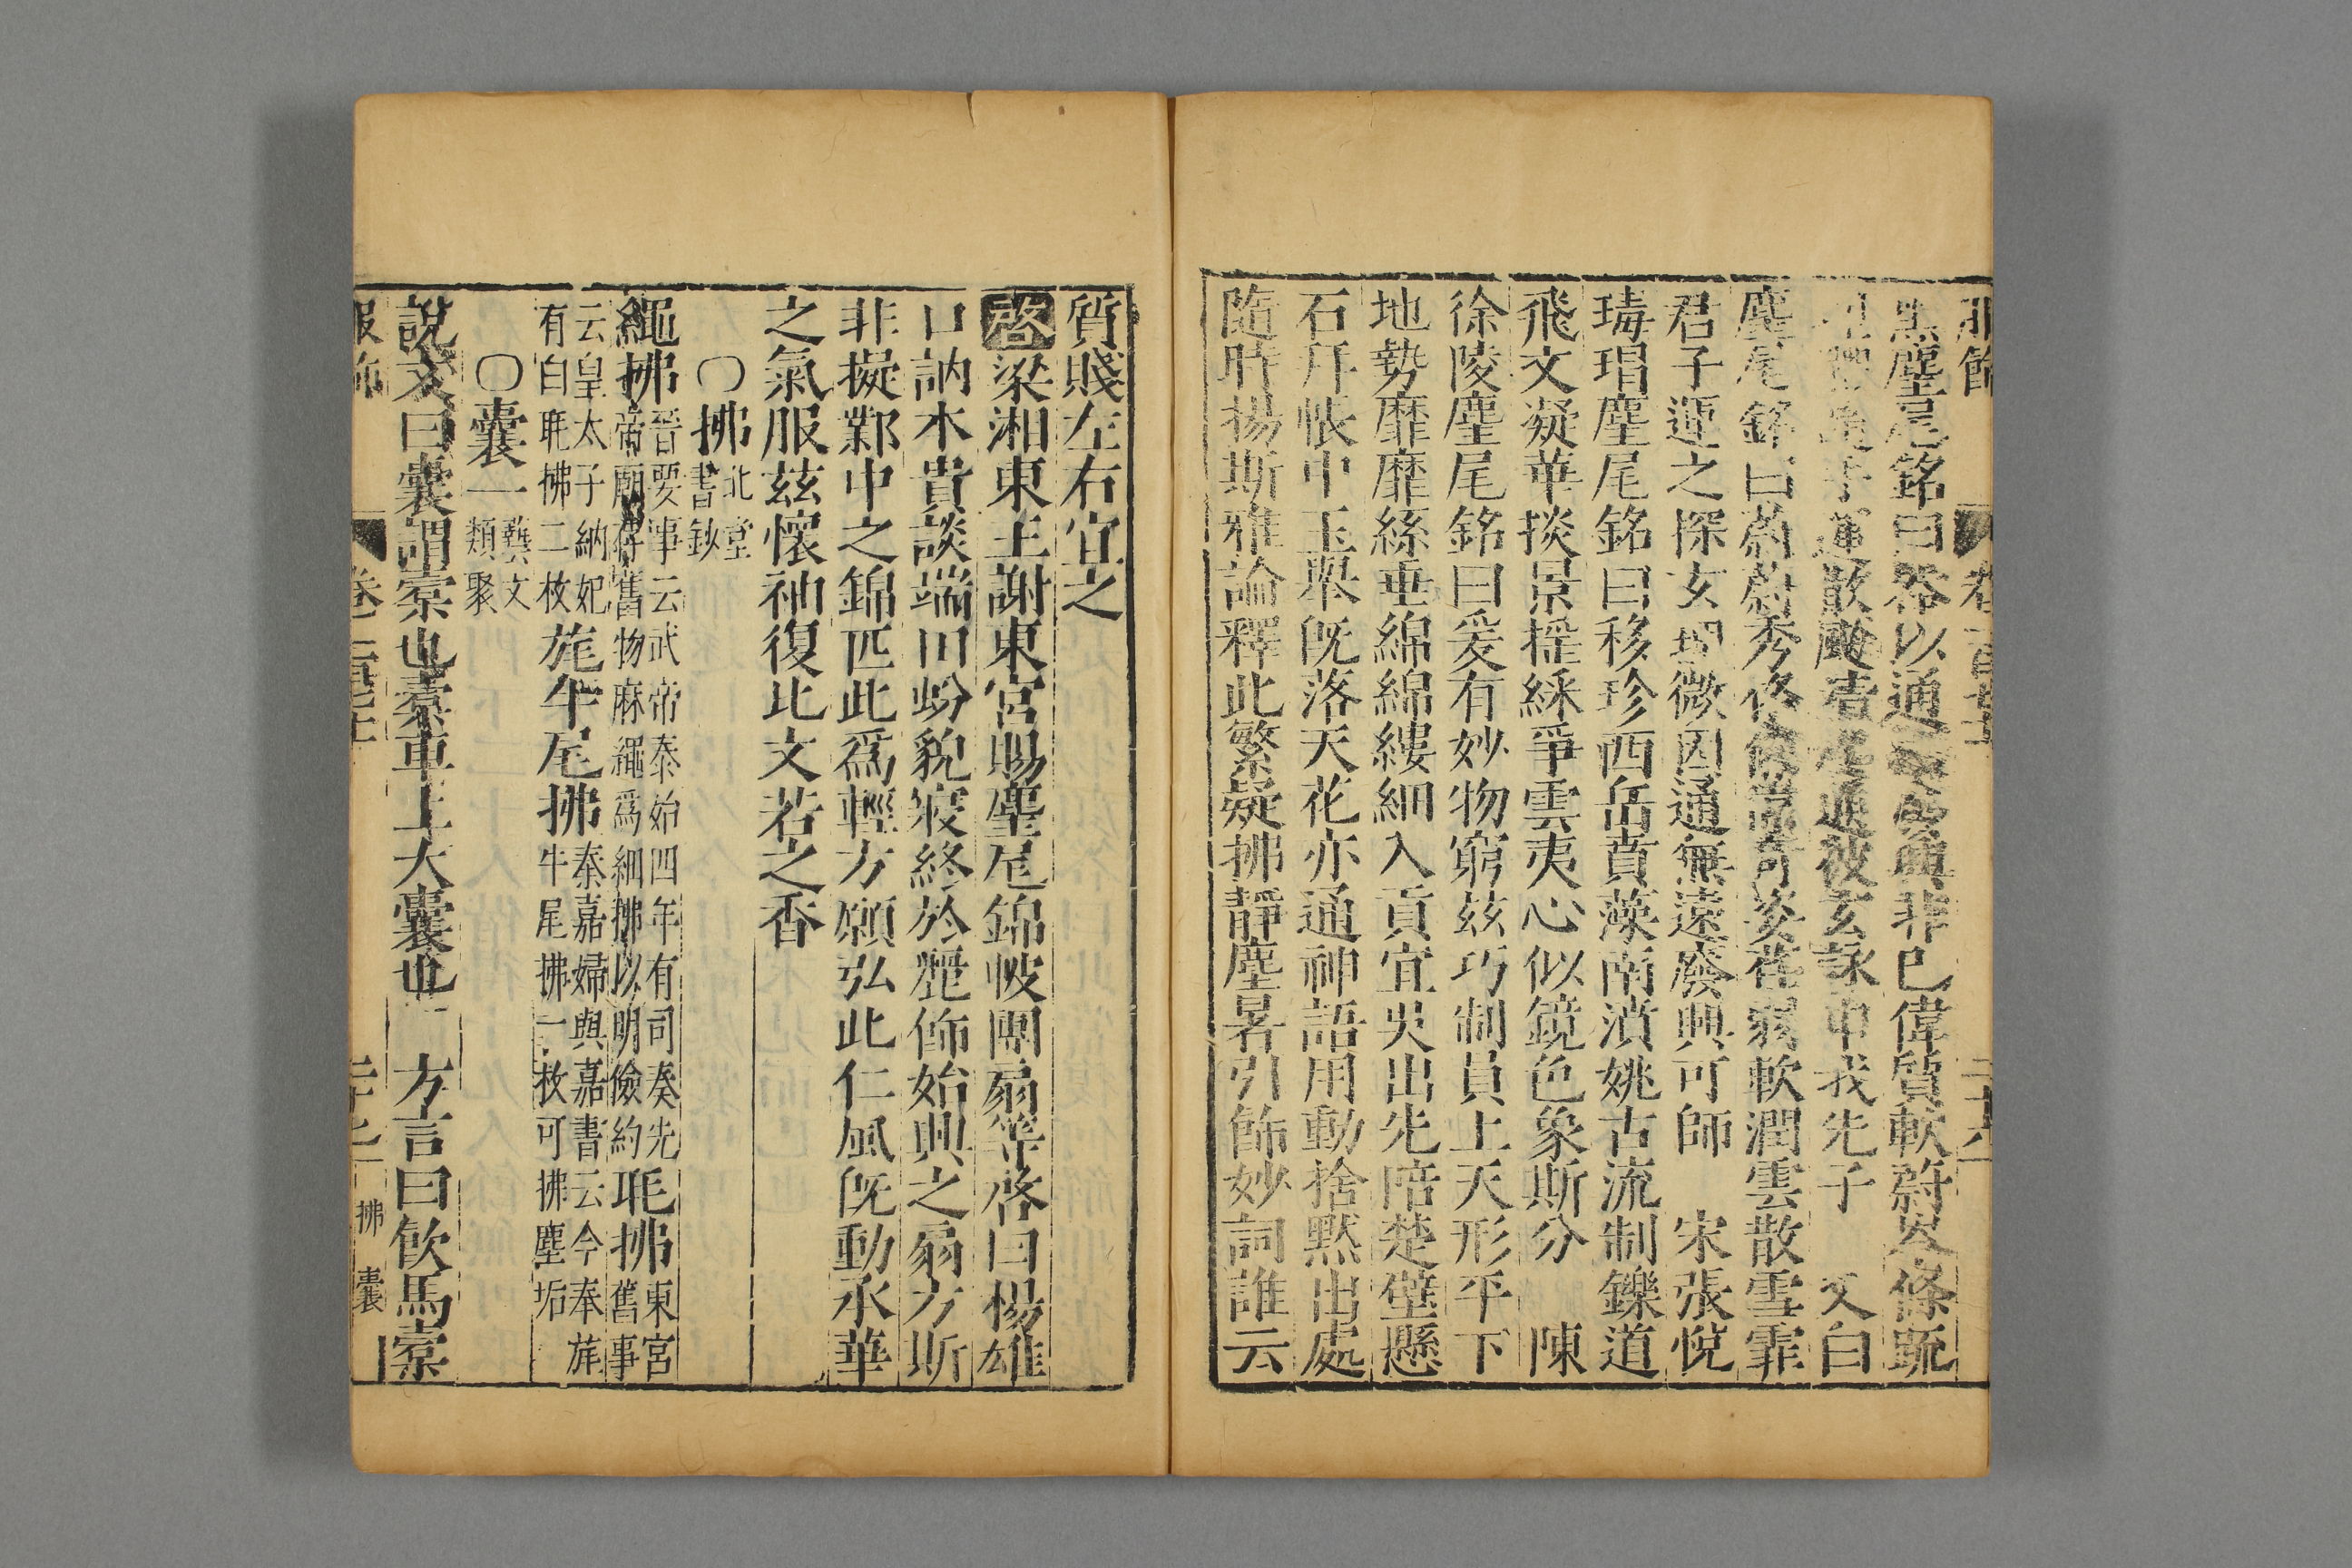 服飾
卷一百七十
二十六
黑麈尾銘曰谷以通 興非巳偉質軟蔚岌條疏
理 隨手運散飇清 通彼玄詠申我先子 又白
麈尾銘曰蔚蔚秀 偉 奇姿荏弱軟潤雲散雪霏
君子運之探玄理微因通無遠廢興可師 宋張悅
瑇瑁麈尾銘曰移珍西岳賁藻南濵姚古流制鑠道
飛文凝華掞景摇綵爭雲夷心似鏡色象斯分 陳
徐陵麈尾銘曰爰有妙物窮茲巧制員上天形平下
地勢靡靡絲垂綿綿縷細入貢宜吳出先陪楚壁懸
石拜帳中玉舉旣落天花亦通神語用動捨默出處
隨時揚斯雅論釋此繁疑拂靜塵暑引飾妙詞誰云
質賤左右宜之
啓梁湘東王謝東宮賜麈尾錦帔團扇等啓曰楊雄
口訥本貴談端田蚡貌寢終於麗飾始興之扇方斯
非擬鄴中之錦匹此爲輕方願弘此仁風旣動承華
之氣服茲懷袖復比文若之香
〇拂北堂
書鈔
繩拂晉要事云武帝泰始四年有司奏先
帝廟 舊物麻繩爲細拂以明儉約毦拂東宮
舊事
云皇太子納妃
有白毦拂二枚旄牛尾拂秦嘉婦與嘉書云今奉旄
牛尾拂一枚可拂塵垢
〇囊一蓺文
類聚
說文曰囊謂橐也橐車上大囊也 方言曰飮馬橐
服飾
二十七
拂
囊